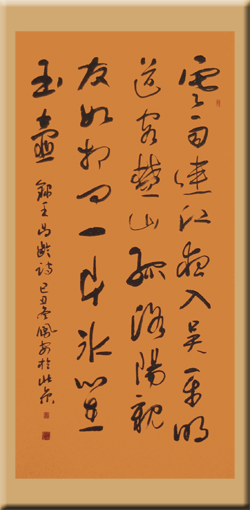 寒雨連江夜入吴平明
送客楚山孤洛陽親
友如相问一片冰心在
玉壺
錄王昌齡詩己丑冬於北京